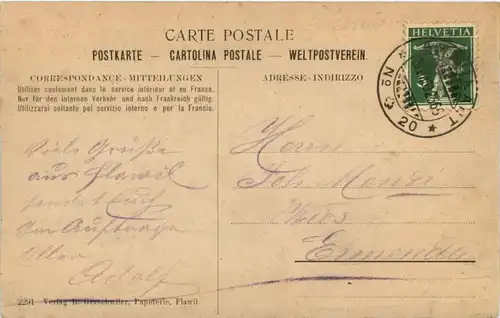 CARTE POSTALE
POSTKARTE — CARTOLINA POSTALE — WELTPOSTVEREIN.
HELVETIA
CORRESPONDANCE - MITTEILUNGEN
Utiliser seulement dans le service intérieur et en France.
Nur für den internen Verkehr und nach Frankreich gültig.
Utilizzarsi soltanto pel servizio interno e per la Francia.
ADRESSE - INDIRIZZO
5
20
Viele Grüße
aus Flawil
sendet Euch
Im Auftrage
Aller
Adolf
Herrn
Joh. Menzi
Ermenda
2291 Verlag B. Gerschwiler, Papeterie, Flawil